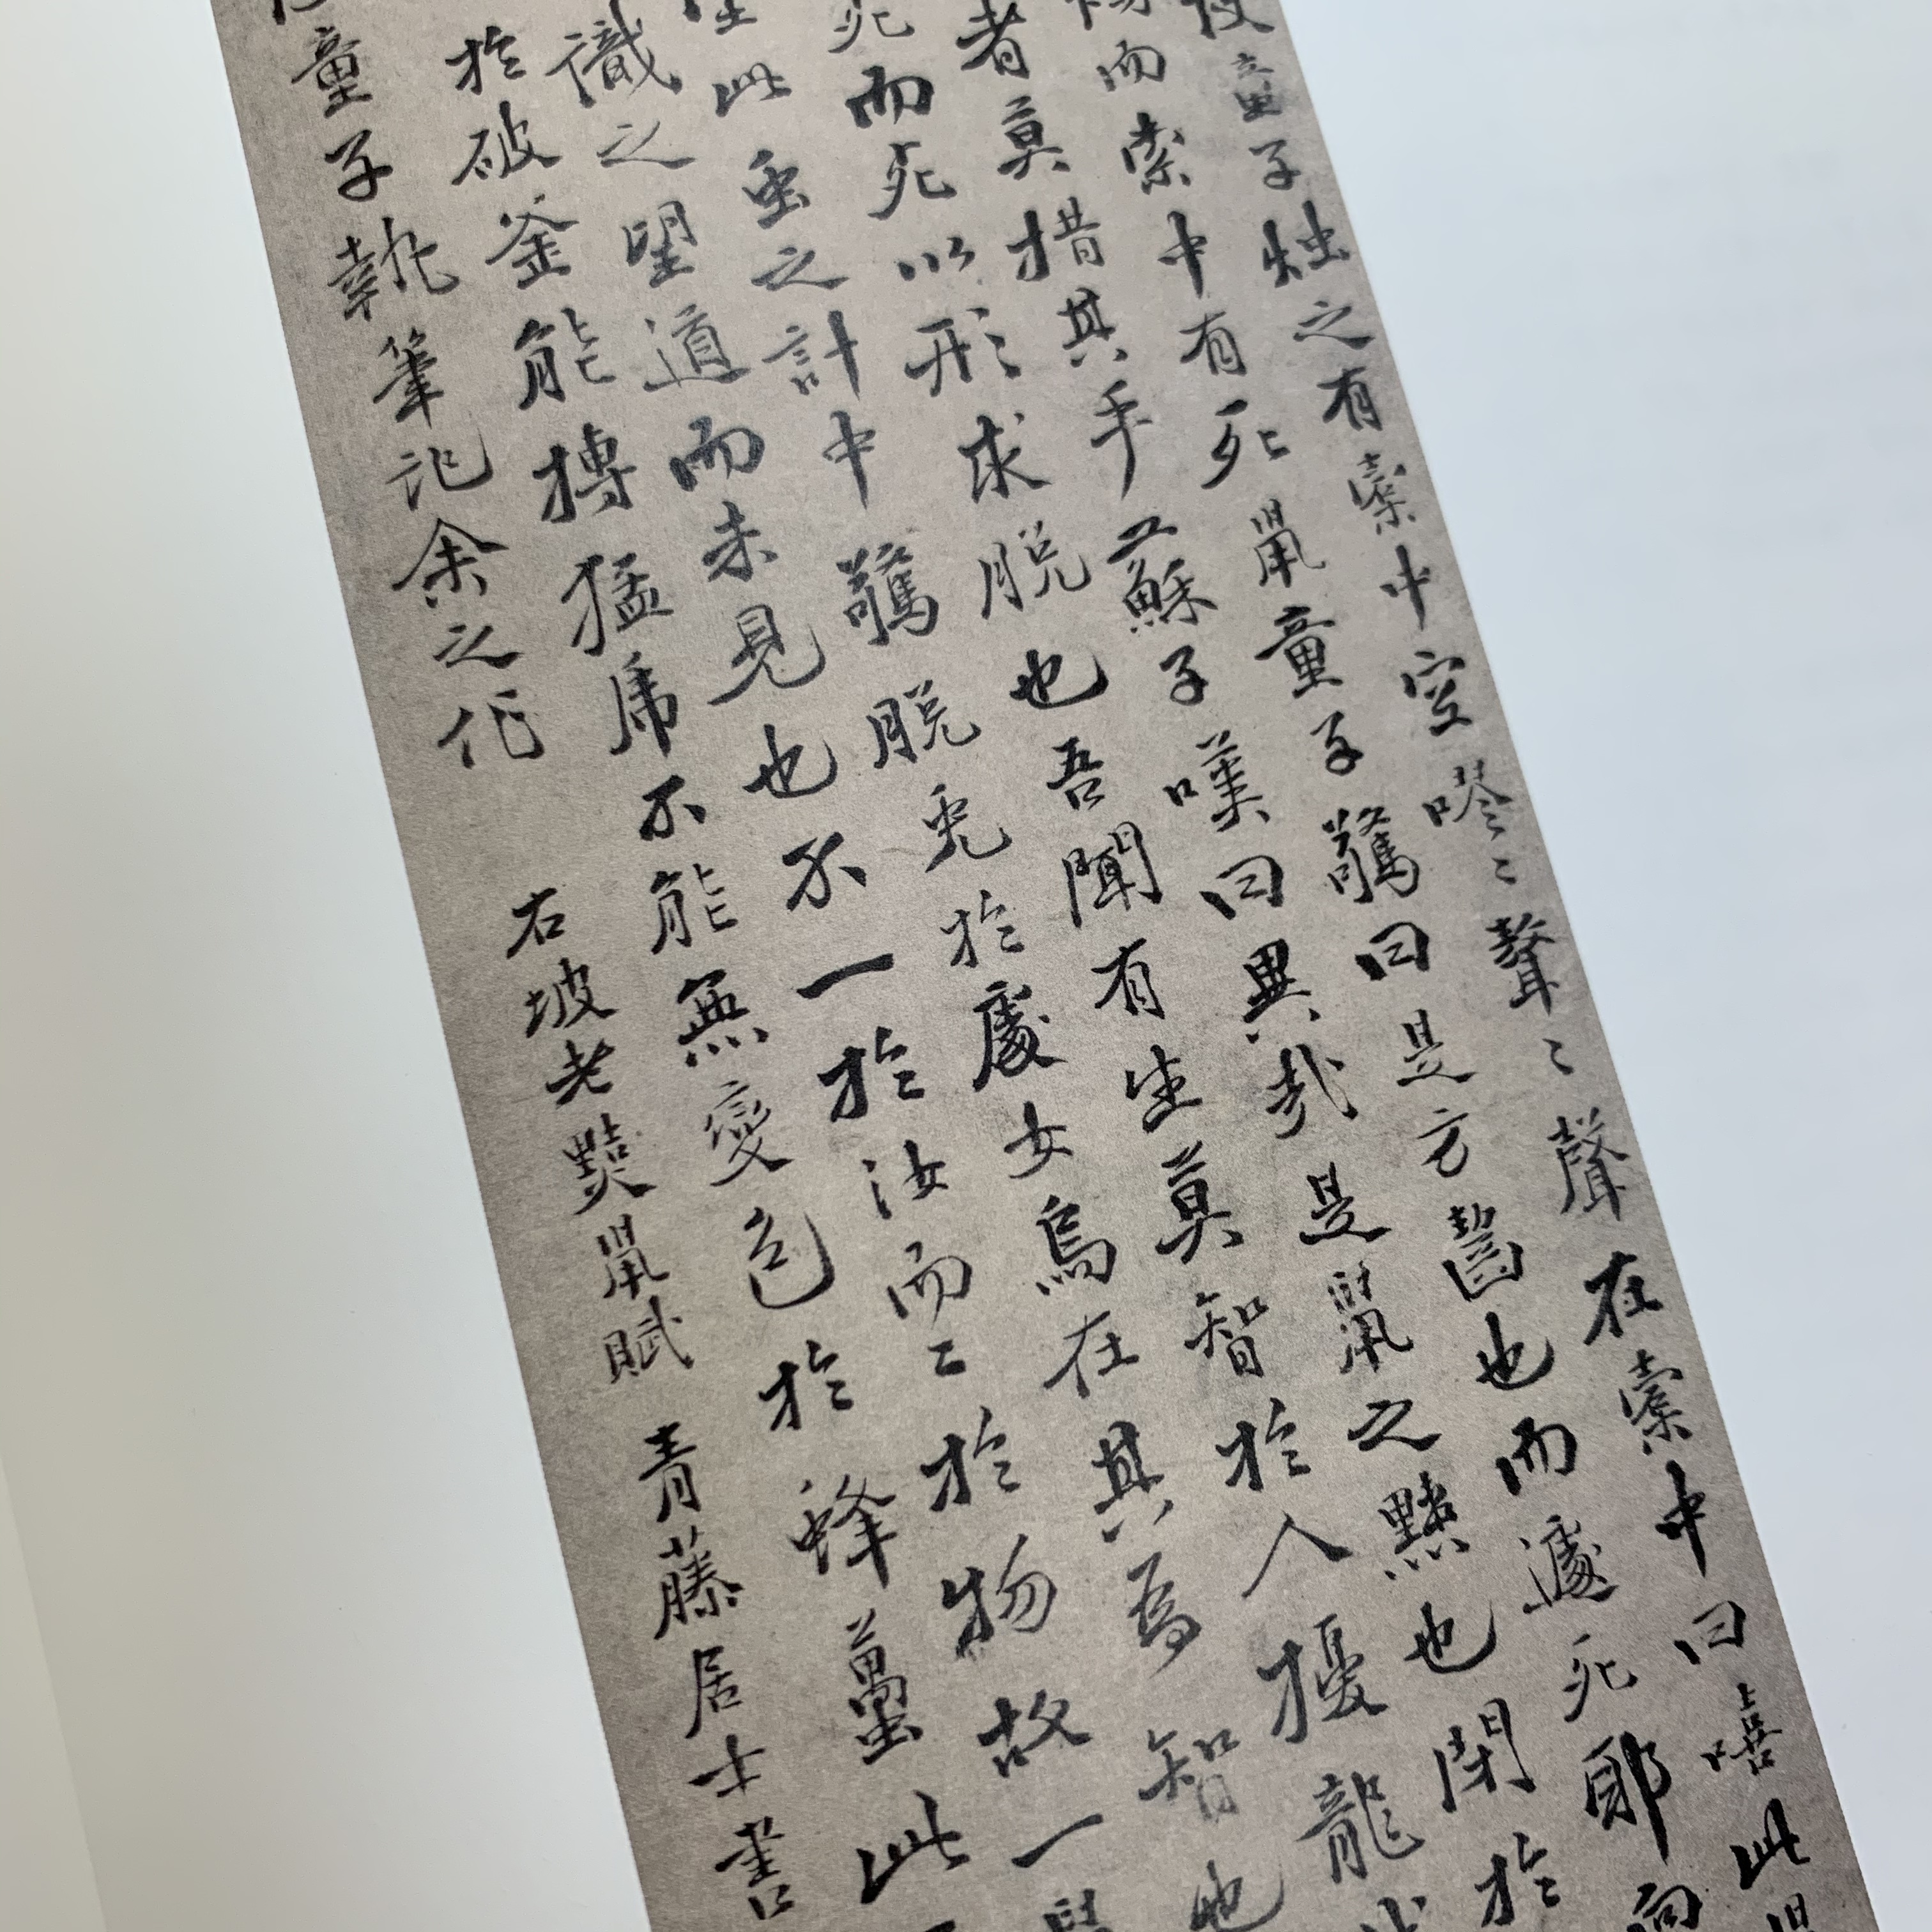 使童子燭之有橐中空嘐〻聱〻聲在橐中曰嘻此
而索中有死鼠童子驚曰是方齧也而遽死耶向
者莫措其手蘇子嘆曰異哉是鼠之黠也閉於
死而死以形求脱也吾聞有生莫智於人擾龍
此虫之計中驚脱兎於處女烏在其為智也
識之望道而未見也不一於汝而二於物故一
於破釜能搏猛虎不能無變色於蜂蠆此
童子執筆記余之作
右坡老黠鼠賦
青藤居士書